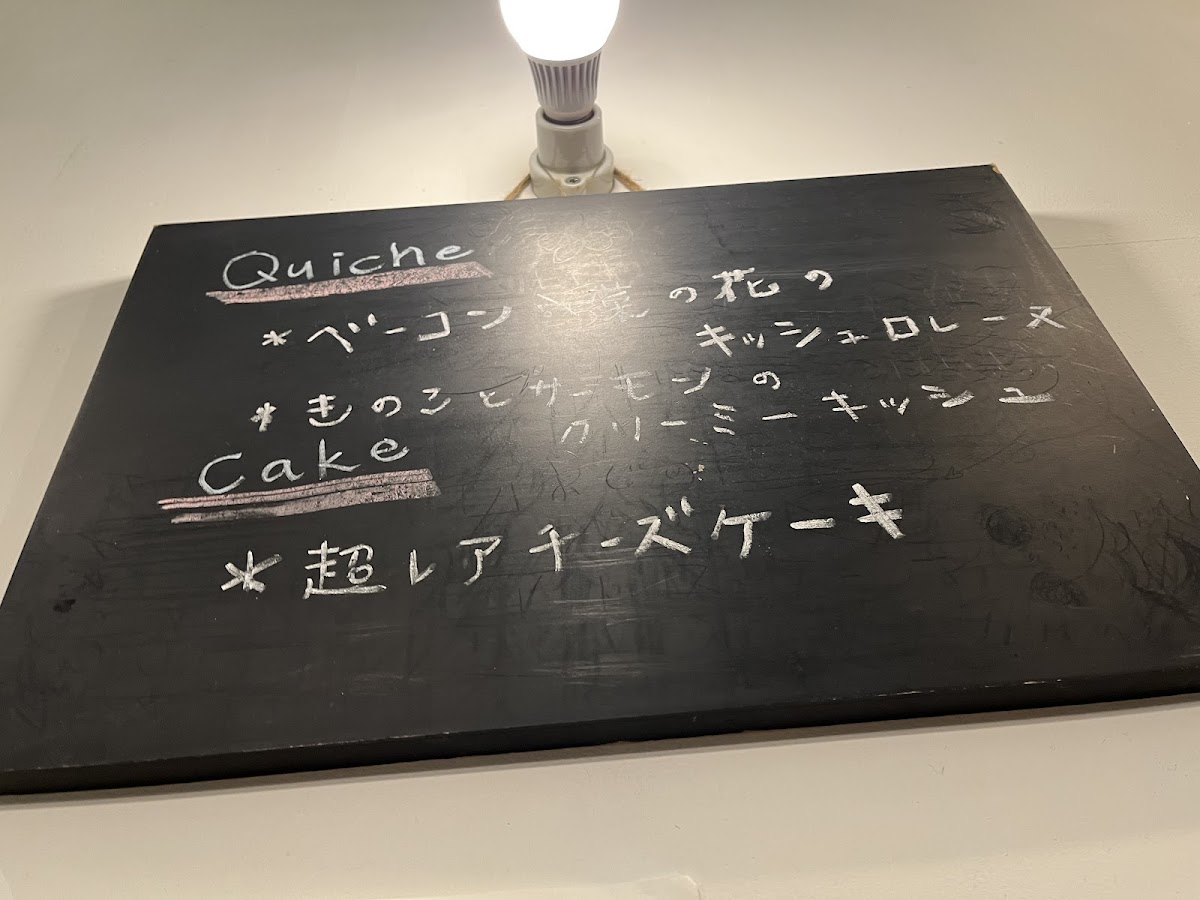 Quiche
*ベーコン 菜の花の
キッシュロレーヌ
*きのことサーモンの
クリーミーキッシュ
Cake
*超レアチーズケーキ